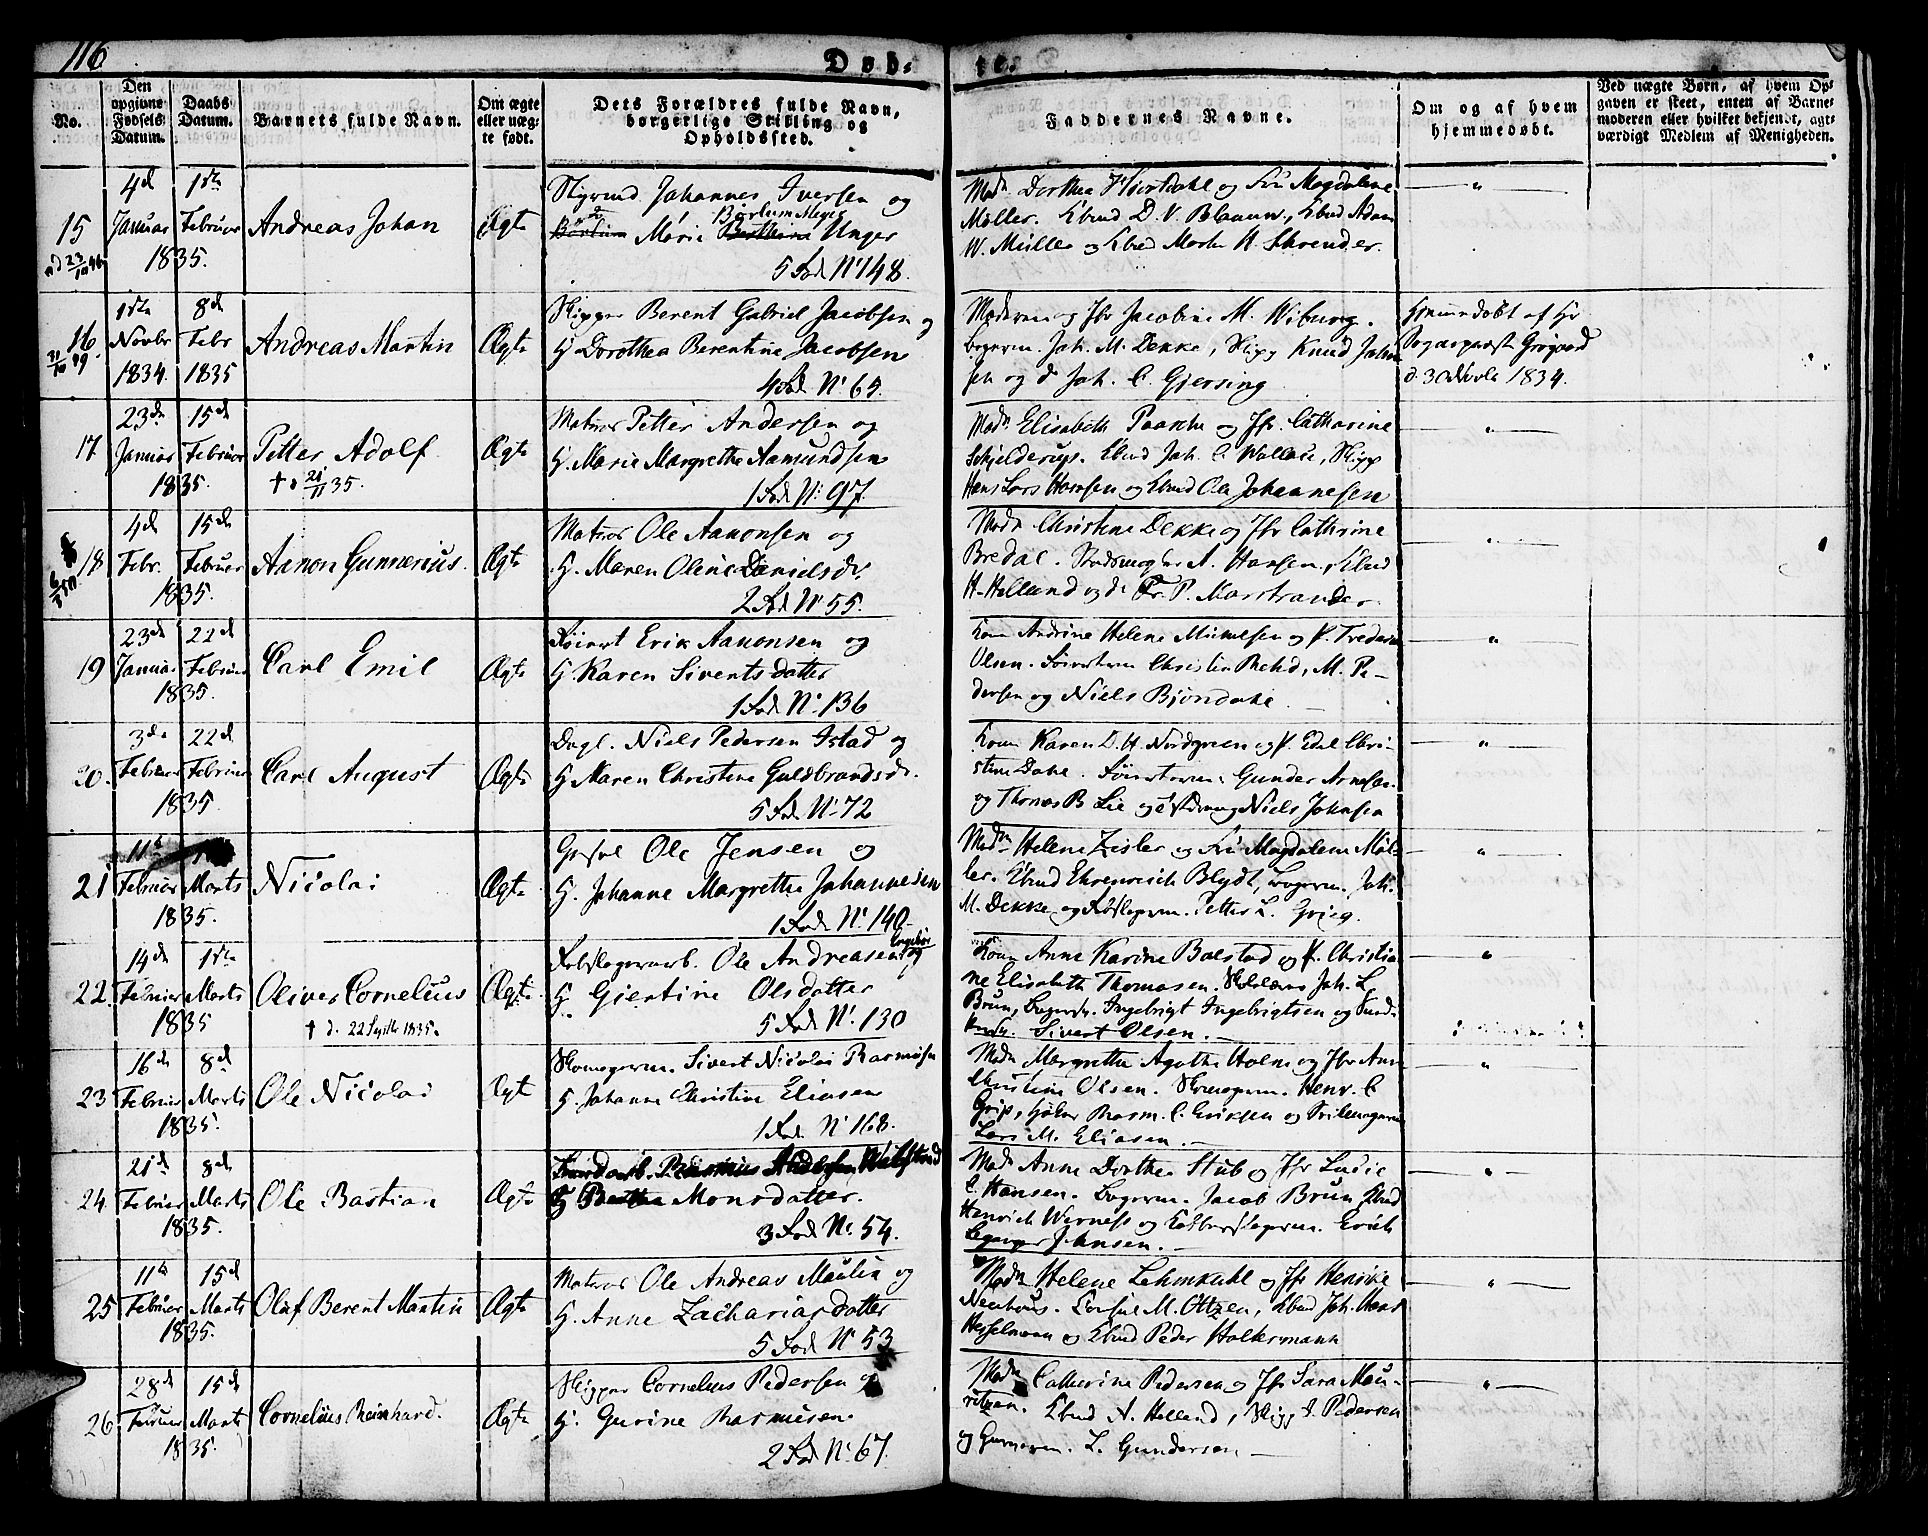 116
Døb-
te.
No.
Den opgivne Fødsels Datum.
Daabs Datum.
Barnets fulde Navn.
Om ægte eller uægte født.
Dets Forældres fulde Navn, borgerlige Stilling og Opholdssted.
Faddernes Navne.
Om og af hvem hjemmedøbt.
Ved uægte Børn, af hvem Opgaven er skeet, enten af Barnemoderen eller hvilket bekjendt, agtværdigt Medlem af Menigheden.
15
4de Januar
1ste Februar
1835.
Andreas Johan
Ægte
Styrmd Johannes Iversen og
Marie Unger
5 Fod No 148.
Madm Dorthea Hjortdahl og Frk Magdalene
Møller. Ebud D. V. Blaauw, Ebud Adam
W. Müller og Ebud Martin H. Schrøuder.
16
1ste Novbr 1834.
8de Febr 1835
Andreas Martin
Ægte
Skipper Berent Gabriel Jacobsen og
H. Dorothea Berentine Jacobsen
4 Fod No 65.
Moderen og Jfr Jacobine M. Wiburg.
Bogerm. Joh. M. Dekke, Skipp Knud Johan
sen og d Joh. C. Gjersing
Hjemmedøbt af Hr
Grøgaard
d. 30 Novbr 1834.
17
23de Januar
15de Februar
1835.
Petter Adolf
† d 21/11 35.
Ægte
Matros Petter Andersen og
H. Marie Margrethe Aamundsen
1 Fod No 97.
Madm Elisabeth Paasche og Jfr Cathrine
Schjelderup. Ebud Joh. C. Wallace, Skipp
Hans Lars Hansen og Ebud Ole Johannesen
18
4de Febr.
15de Februar
1835.
Aanon Gunnerius.
Ægte
Matros Ole Aanonsen og
H. Maren Oline Danielsdr.
2 Fod No 55.
Madm Christine Dekke og Jfr Cathrine
Bredal. A. Hansen, Ebud
H. Helland og d Fr. P. Marstrander.
19
23de Januar
22de Februar
1835.
Carl Emil
Ægte
Erik Aanonsen og
H. Karen Sivertsdatter
1 Fod No. 136
Kone Andrine Helene Mikkelsen og P. Frederi
Olsen. Christin M. Pe-
dersen og Niels Bjørndahl
20.
3die Februar
22de Februar
1835.
Carl August
Ægte
Dagl. Niels Pedersen Istad og
H. Maren Christine Guldbrandsdr.
5 Fod No. 72
Kone Karen D. H. Nordgreen og P. Edel Chri-
stine Dahl. Gunder Arnesen
og Thomas B Lie og Niels Johnsen
21
11te Februar
Marts
1835.
Nicolai
Ægte
Ole Jensen og
H. Johanne Margrethe Johannesen
1 Fod No. 140.
Madm Helene Zisler og Frk Magdalene Møl-
ler. Ebud Ehrenreich Blydt, Bogerm. Joh.
M. Dekke og Petter L. Grieg.
22.
14de Februar
1ste Marts
1835
Oliver Cornelius
† d. 22 Septbr 1835.
Ægte
Ole Andreasen og
H. Giertine Olsdatter
5 Fod No. 130
Kone Anne Karine Bolstad og P. Christia
ne Elisabeth Thomasen. Joh. L.
Brun, Ingebrigt Ingebrigtsen og
Sivert Olsen.
23
16de Februar
8de Marts
1835.
Ole Nicolai
Ægte
Skomagerm. Sivert Nicolai Rasmusen
H. Johanne Christine Eliasen
1 Fod. No 168.
Madm Margrethe Agathe Holm og Jfr Ann
Christine Olsen. Skomagerm. Henr. C
Grip, Rasm. C. Eriksen og
Lars M. Eliasen.
24
21de Februar
8de Marts
1835.
Ole Bastian
Ægte
Rasmus Andersen
H. Berthe Monsdatter.
3 Fod No. 54.
Madm Anne Dorthea Stub og Jfr Lucie
C. Hansen. Bogerm. Jacob Brun Ebud
Henrich Werness og Kobberslagerm. Erich
Johnsen.
25
11te Februar
15de Marts
1835.
Oluf Berent Martin
Ægte
Matros Ole Andreas Maulin og
H. Anne Zachariasdatter
5 Fod No 53
Madm Helene Lehmkuhl og Jfr Henrike
Neuhaus. Consul M. Ottzen, Ebud Joh. Hans
Hesselmann og Ebud Peder Holtermann
26
28de Februar
15de Marts
1835.
Cornelius Reinhard.
Ægte
Skipper Cornelius Pedersen og
H. Gurine Rasmusen
2 Fod No. 67.
Madm Catherine Pedersen og Jfr Sara Mau-
ritzen. Ebud A. Helland, Skipp J. Pedersen
og L. Gundersen